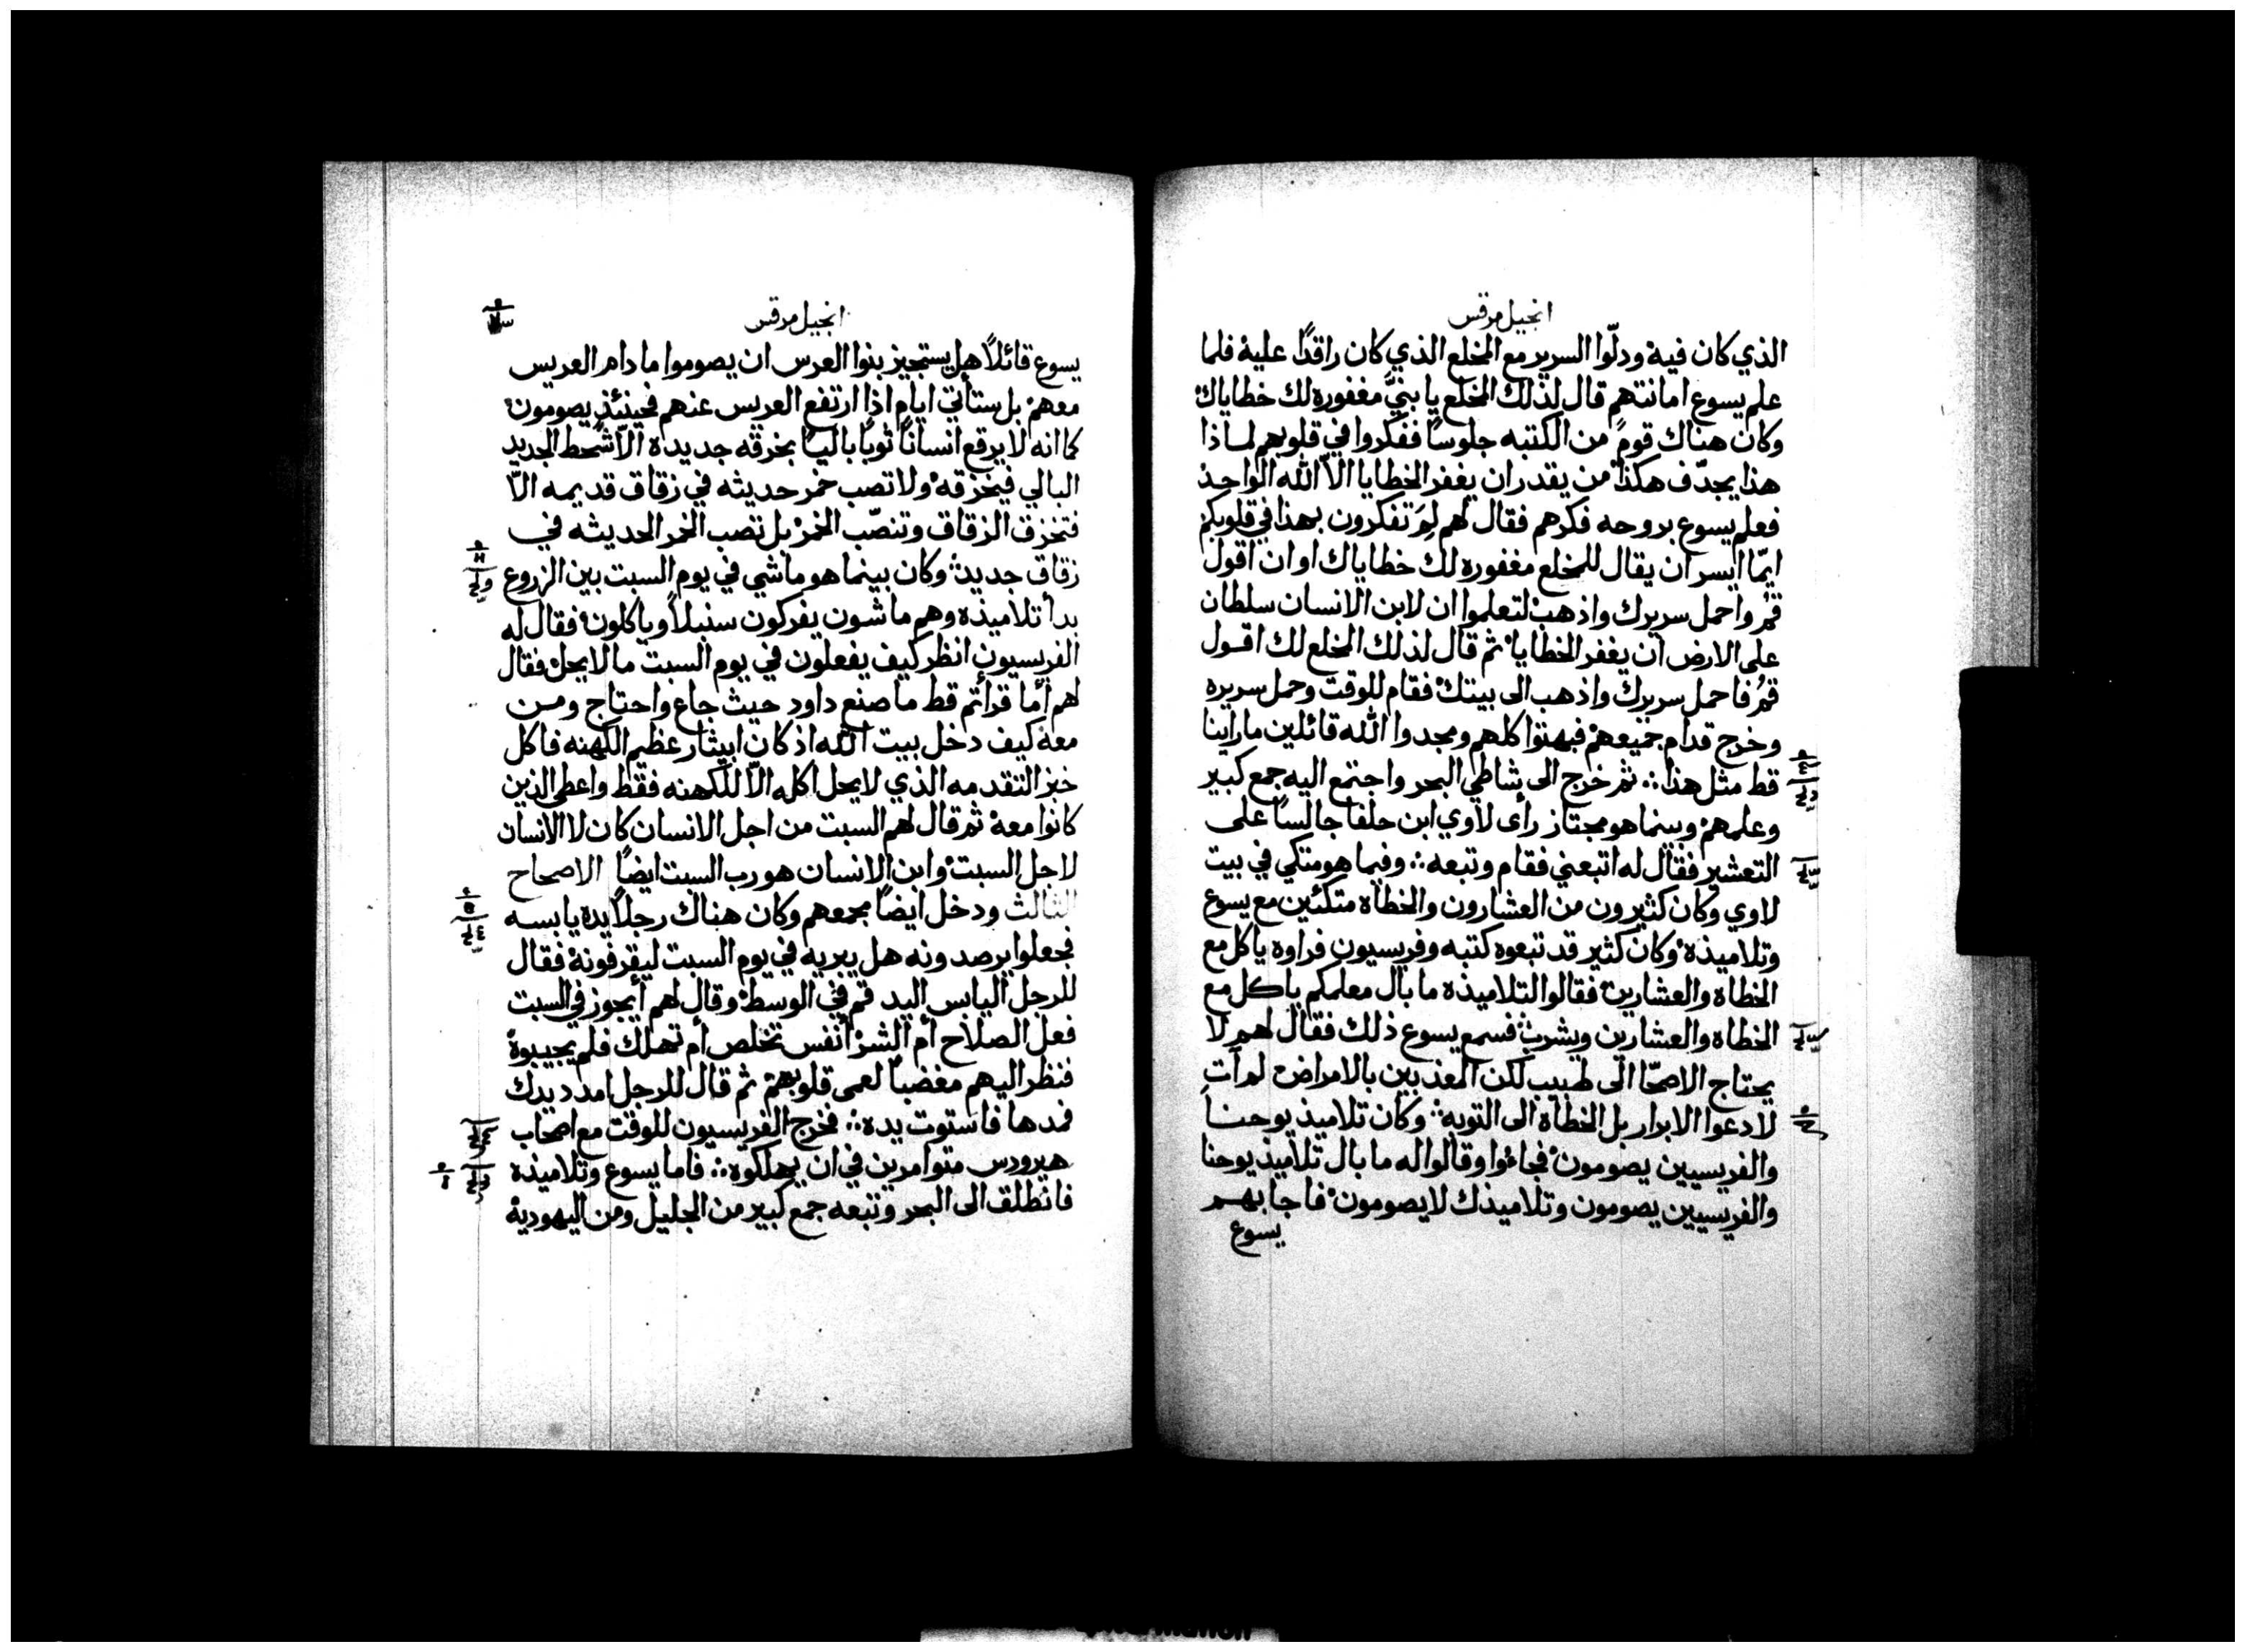 انجيل مرقس
الذي كان فيه ودلّوا السرير مع المخلع الذي كان راقدًا عليه فلما
علم يسوع امانتهم قال لذلك المخلع يا بنيَّ مغفوره لك خطاياك
وكان هناك قومٌ من الكتبه جلوسًا ففكروا في قلوبهم لماذا
هذا يجدّف هكذا من يقدر ان يغفر الخطايا الاّ الله الواحد
فعلم يسوع بروحه فكرهم فقال لهم لِمَ تفكرون بهذا في قلوبكم
ايمّا ايسر ان يقال للمخلع مغفوره لك خطاياك او ان اقول
قم واحمل سريرك واذهب لتعلموا ان لابن الانسان سلطان
على الارض ان يغفر الخطايا ثم قال لذلك المخلع لك اقول
قمُ فاحمل سريرك واذهب الى بيتك فقام للوقت وحمل سريره
وخرج قدام جميعهم فبهتوا كلهم ومجدوا الله قائلين ما راينا
قط مثل هذا ∴ ثم خرج الى شاطي البحر واجتمع اليه جمع كبير
وعلمهم وبينما هو مجتاز راى لاوي ابن حلفا جالسًا على
التعشير فقال له اتبعني فقام وتبعه ∴ وفيما هو متكي في بيت
لاوي وكان كثيرون من العشارون والخطاه متكئين مع يسوع
وتلاميذه وكان كثير قد تبعوه كتبه وفريسيون فراوه ياكل مع
الخطاه والعشارين فقالوا لتلاميذه ما بال معلمكم ياكل مع
الخطاه والعشارين ويشرب فسمع يسوع ذلك فقال لهم لا
يحتاج الاصحّا الى طبيب لكن المعذبين بالامراض لم آت
لادعوا الابرار بل الخطاه الى التوبه ∴ وكان تلاميذ يوحنا
والفريسيين يصومون فجاءوا وقالوا له ما بال تلاميذ يوحنا
والفريسيين يصومون وتلاميذك لا يصومون فاجابهم
يسوع
انجيل مرقس
يسوع قائلاً هل يستجيز بنوا العرس ان يصوموا ما دام العريس
معهم بل ستأتي ايام اذا ارتفع العريس عنهم فحينئذٍ يصومون
كما انه لا يرقع انسانًا ثوبًا باليًا بخرقه جديده الاّ شحط الجديد
البالي فيخزقه ولا تصب خمر حديثه في زقاق قديمه الاّ
فتخزق الزقاق وتنصّب الخمر بل تصب الخمر الحديثه في
زقاق جديد وكان بينما هو ماشي في يوم السبت بين الزروع
بدأ تلاميذه وهم ماشون يفركون سنبلاً وياكلون فقال له
الفريسيون انظر كيف يفعلون في يوم السبت ما لا يحل فقال
لهم أما قرأتم قط ما صنع داود حيث جاع واحتاج ومن
معه كيف دخل بيت الله اذ كان ابيثار عظيم الكهنه فاكل
خبز التقدمه الذي لا يحل اكله الاّ للكهنه فقط واعطى الذين
كانوا معه ثم قال لهم السبت من اجل الانسان كان لا الانسان
لاجل السبت وابن الانسان هو رب السبت ايضًا الاصحاح
الثالث ودخل ايضًا مجمعهم وكان هناك رجلاً يده يابسه
فجعلوا يرصدونه هل يبريه في يوم السبت ليقرفونه فقال
للرجل اليابس اليد قم في الوسط وقال لهم أيجوز في السبت
فعل الصلاح أم الشر أنفس تخلص أم تهلك فلم يجيبوه
فنظر اليهم مغضبًا لعمى قلوبهم ثم قال للرجل امدد يدك
فمدها فاستوت يده ∴ فخرج الفريسيون للوقت مع اصحاب
هيرودس متوامرين في ان يهلكوه ∴ فاما يسوع وتلاميذه
فانطلق الى البحر وتبعه جمع كبير من الجليل ومن اليهوديه